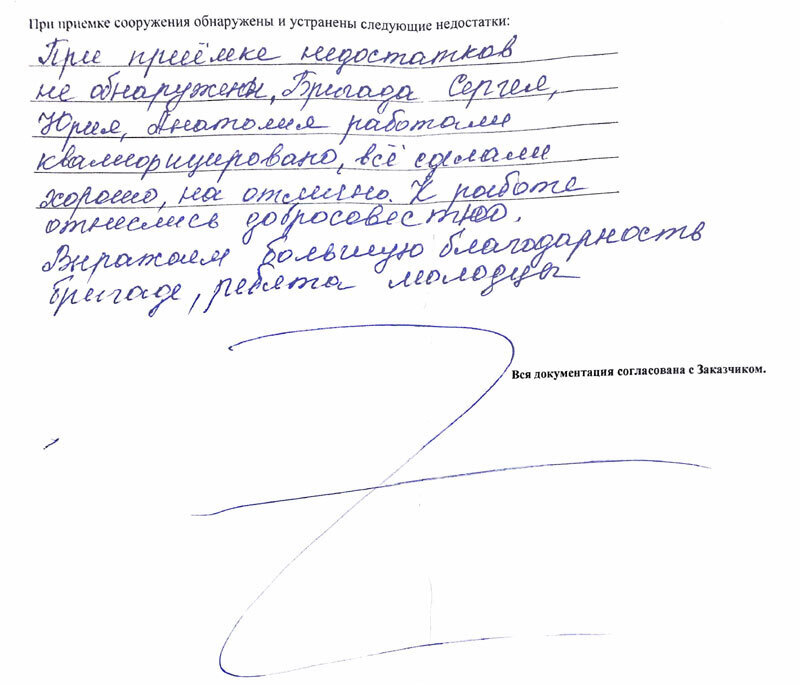 При приемке сооружения обнаружены и устранены следующие недостатки:
При приёмке недостатков
не обнаружены, Бригада Сергея,
Юрия, Анатолия работали
квалиорицировано, всё сделали
хорошо, на отлично. К работе
отнеслись добросовестно.
Выражаем большую благодарность
бригаде, ребята молодцы
Вся документация согласована с Заказчиком.